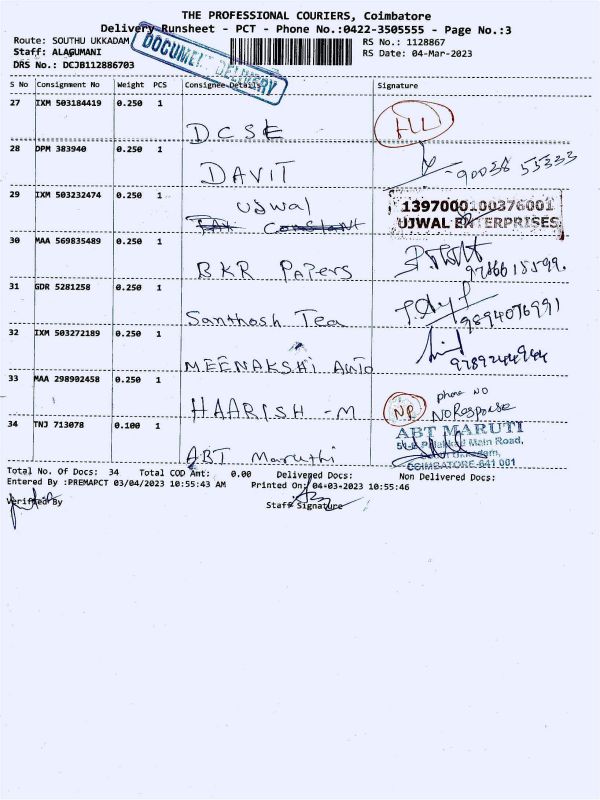 THE PROFESSIONAL COURIERS, Coimbatore
Delivery Runsheet - PCT - Phone No.:0422-3505555 - Page No.:3
Route: SOUTHU UKKADAM
RS No.: 1128867
Staff: ALAGUMANI
RS Date: 04-Mar-2023
DRS No.: DCJB112886703
DOCUMENT DELIVERY
S No Consignment No Weight PCS Consignee Details Signature
27 IXM 503184419 0.250 1 DCSE
28 DPM 383940 0.250 1 DAVIT 90038 55333
29 IXM 503232474 0.250 1 Ujwal
1397000100376001
UJWAL ENTERPRISES
30 MAA 569835489 0.250 1 BKR Papers
31 GDR 5281258 0.250 1 Santhosh Tea 9894076991
32 IXM 503272189 0.250 1 MEENAKSHI AUTO
33 MAA 298902458 0.250 1 HAARISH -M NR phone NO
NO Response
34 TNJ 713078 0.100 1 ABT Maruthi
ABT MARUTI
Main Road,
COIMBATORE-641 001
Total No. Of Docs: 34 Total COD Amt: 0.00 Delivered Docs: Non Delivered Docs:
Entered By :PREMAPCT 03/04/2023 10:55:43 AM Printed On: 04-03-2023 10:55:46
Verified By Staff Signature